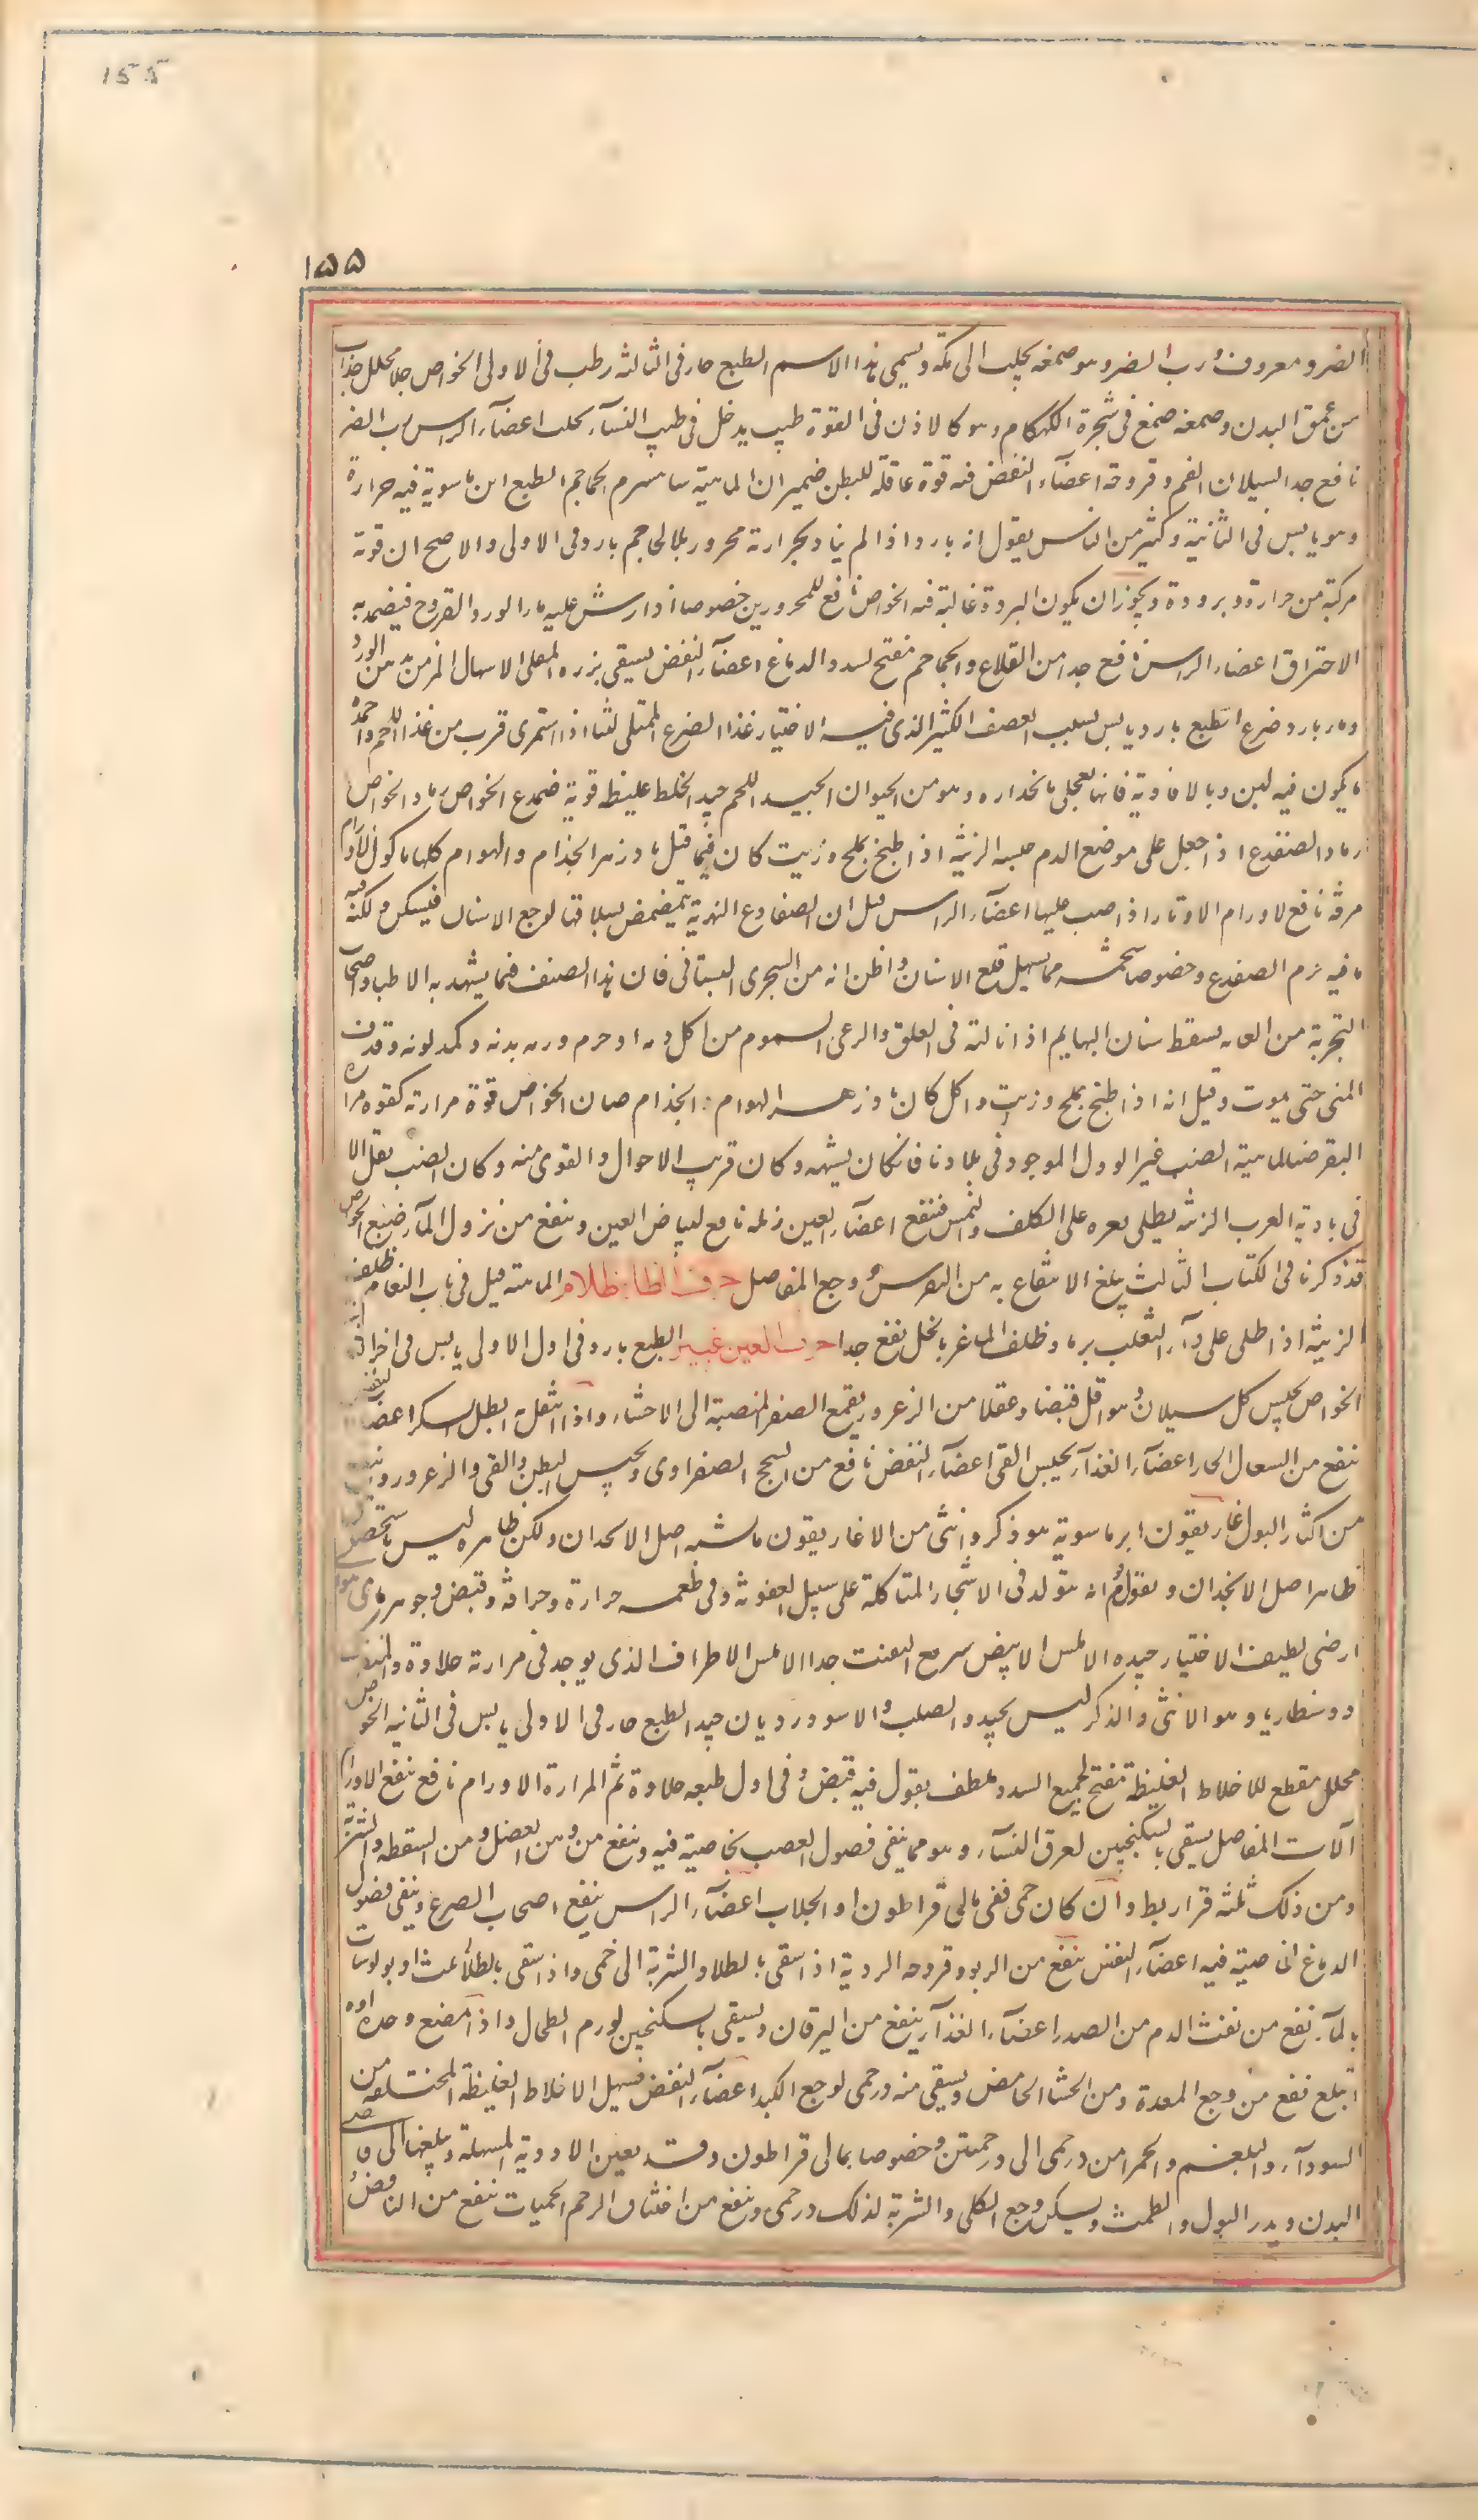 155
١٥٥
الضرو معروف ورب الضرو هو صمغه يجلب الى مكة ويسمى هذا الاسم الطبع حار فى الثالثة رطب فى الاولى الخواص جلا محلل جذاب
من عمق البدن وصمغه صمغ فى شجرة الكهكام وهو كالاذن فى القوة طيب يدخل فى طيب النسآء اعضآء الراس رب الضر
نافع جدا لسيلان الفم وقروحه اعضآء النفض فيه قوة عاقلة للبطن ضميران الماهية الطبع ابن ماسوية فيه حرارة
وهو يابس فى الثانية وكثير من الناس يقول انه بارد واذا لم بحرارة محرور بلا الحاجم بارد فى الاولى والاصح ان قوته
مركبة من حرارة وبرودة ويجوز ان يكون البرودة غالبة فيه الخواص نافع للمحرورين خصوصا اذا رش عليه مار الورد القروح فيضمد به
الاحتراق اعضاء الراس نافع جدا من القلاع والحجاحم مفتح لسدد الدماغ اعضآء النفض يسقى بزره المعلى الاسهال المزمن بدهن الورد
ومار بارد ضرع الطبع بارد يابس لسبب العصف الكثير الذى فيه الاختيار غذا الضرع الممتلى لبنا اذا استمرى قرب من غذا اللحم واحمده
ما يكون فيه لبن وبالافاوية فانها تعجلى بانحداره وهو من الحيوان الجيد اللحم جيد الخلط غليظه قوية ضفدع الخواص رماد الخواص
رماد الضفدع اذا جعل على موضع الدم حبسه الزينة اذا طبخ بملح وزيت كان فيما قيل بادزهر الجذام والهوام كلها ماكول الاورام
مرقه نافع لاورام الاوتار اذا صب عليها اعضآء الراس قيل ان الضفادع النهرية يتمضمض بسلاقتها لوجع الاسنان فيسكن ولكنه
ما فيه الضفدع وخصوصا شحمه مما يسهل قلع الاسنان واظن انه من الشجرى البستانى فان هذا الصنف فيما يشهد به الاطبا واصحاب
التجربة من العامه يسقط سنان البهايم اذا نالته فى العلف والرعى السموم من اكل دمه او جرمه ورم بدنه وكمد لونه وقذف
المنى حتى يموت وقيل انه اذا طبخ بملح وزيت واكل كان بادزهر الهوام والجذام الخواص قوة مرارته كقوة مرارة
البقر ضب الماهية الضب غير الورل الموجود فى بلادنا فان كان يشبهه وكان قريب الاحوال والقوى منه وكان الضب يقل الا
فى بادية العرب الزينة يطلى بعره على الكلف والنمش فينفع اعضآء العين زبله نافع لبياض العين وينفع من نزول المآء ضبع الخواص
قد ذكرنا فى الكتاب الثالث يبلغ الانتفاع به من النقرس وجع المفاصل حرف الظا ظلام الماهية قيل فى باب النعام ظلف
الزينة اذا طلى على دآء الثعلب برماد ظلف الماعز بالخل نفع جدا حرف الغين غبيرا الطبع بارد فى اول الاولى يابس فى اخر
الخواص يحبس كل سيلان وهو اقل قبضا وعقلا من الزعرور يقمع الصفرا المنصبة الى الاحشاء واذا انتقل به ابطل السكر اعضآء النفس
ينفع من السعال الحار اعضآء الغذآء يحبس القى اعضآء النفض نافع من السحج الصفراوى ويحبس البطن والقى والزعرور
من اكثار البول غاريقون ابن ماسوية هو ذكر وانثى من الاغاريقون ما يشبه اصل الانجدان ولكن ظاهره ليس
ظاهر اصل الانجدان ويقول قوم انه يتولد فى الاشجار المتاكلة على سبيل العفونة وفى طعمه حرارة وحرافة وقبض وجوهر
ارضى لطيف الاختيار جيده الاملس الابيض سريع التفتت جدا الاملس الاطراف الذى يوجد فى مرارته حلاوة
دونسطاريا وهو الانثى والذكر ليس بجيد والصلب والاسود رديان جيد الطبع حار فى الاولى يابس فى الثانيه الخواص
محلل مقطع للاخلاط الغليظة مفتح لجميع السدد ملطف يقول فيه قبض وفى اول طعمه حلاوة ثم المرارة الاورام نافع ينفع الاورام
آلات المفاصل يسقى بالسكنجبين لعرق النسآء وهو مما ينقى فضول العصب بخاصية فيه وينفع من وهن العضل ومن السقطه والشربة
ومن ذلك ثلثه قراريط وان كان حمى ففى مالى قراطون او الجلاب اعضآء الراس ينفع اصحاب الصرع وينقى فضول
الدماغ بخاصية فيه اعضآء النفس ينفع من الربو وقروحه الردية اذا سقى بالطلا والشربة الى درخمى واذا سقى بالطلآء
بالمآء نفع من نفث الدم من الصدر اعضآء الغذآء ينفع من اليرقان ويسقى بالسكنجبين لورم الطحال واذا مضغ وحده او
ابتلع نفع من وجع المعدة ومن الجشا الحامض ويسقى منه درخمى لوجع الكبد اعضآء النفض فيسهل الاخلاط الغليظة المختلفة من
السودآء والبلغم والحمرا من درخمى الى درخميتين وخصوصا بمالى قراطون وقد يعين الادوية المسهلة ويبلغها الى اقصى
البدن ويدر البول والطمث ويسكن وجع الكلى والشربة لذلك درخمى وينفع من اختناق الرحم الحميات ينفع من النافض